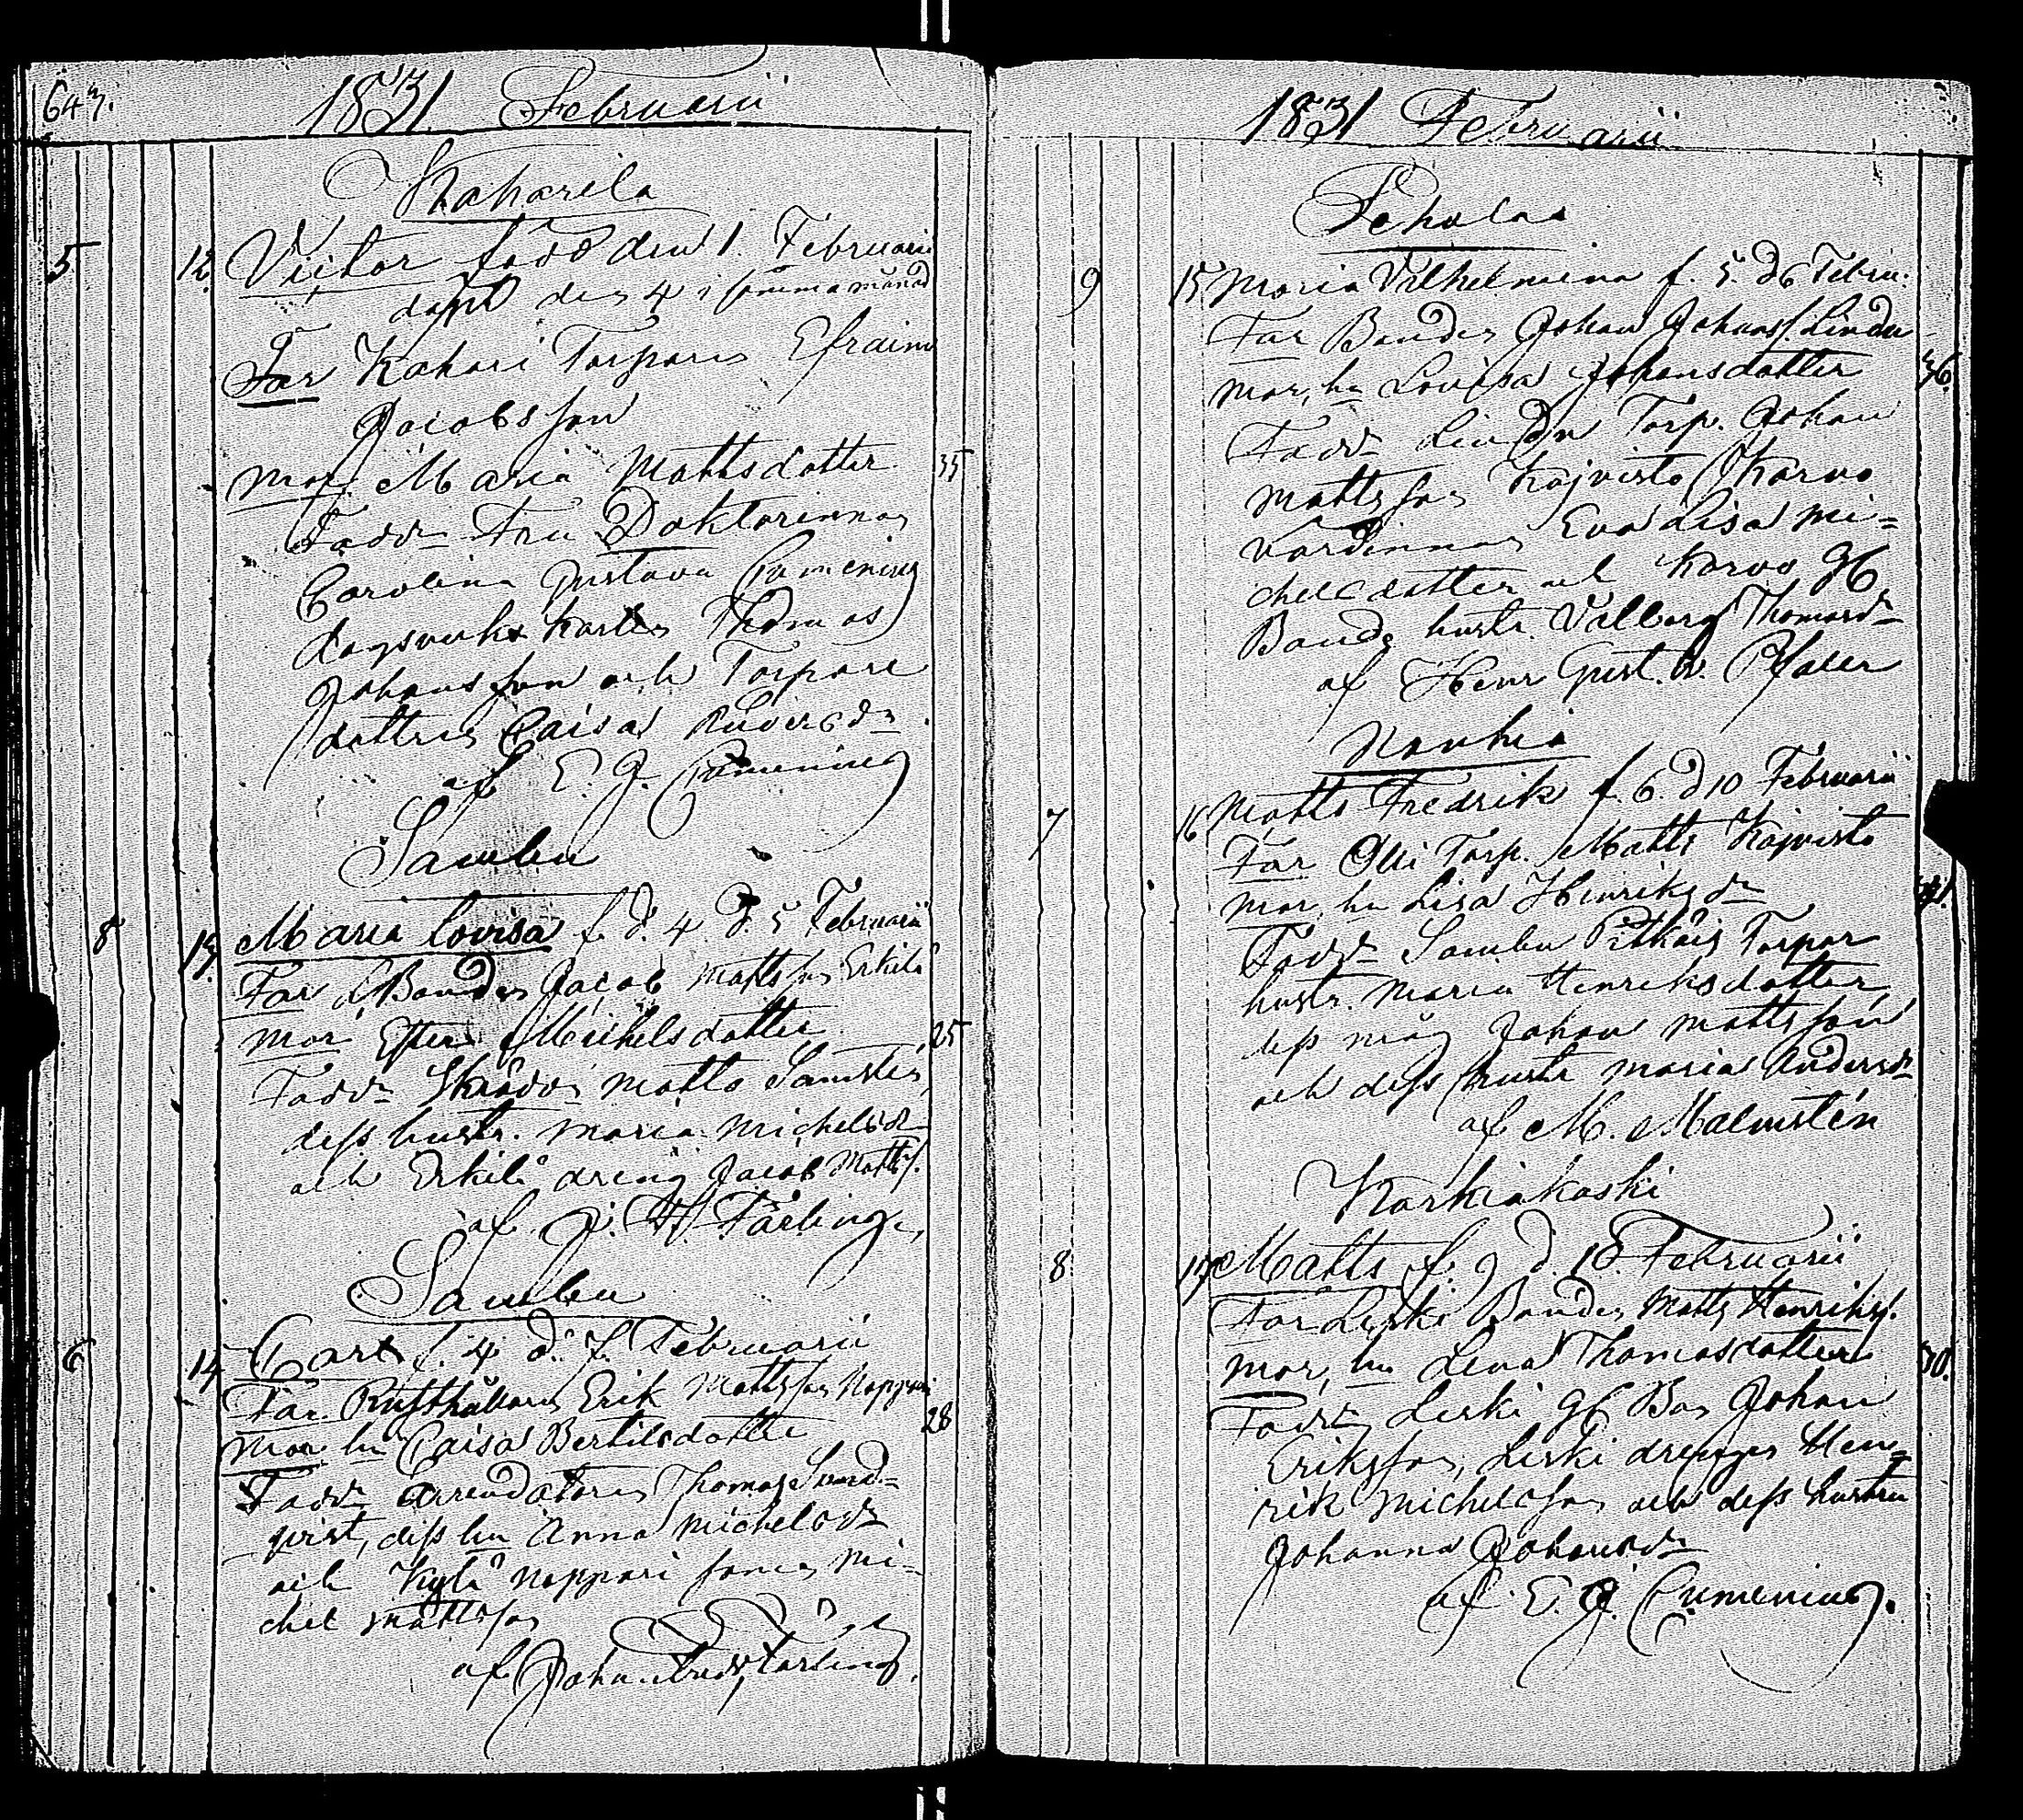 643.
1831. Februarii
Kaharila
5 12. Victor född den 1. Februarii
döpt den 4 i samma månad
Far Kahari Torparen Efraim
Jacobsson
Mor Maria Mattsdotter 35
Fadd. Fru Doktorinnan
Carolina Gustava Cumenius
dagsverks karlen Thomas
Johansson och Torpare
dottren Caisa
af E. J. Cumenius
Sambu
8 13. Maria Lovisa f. d. 4 d. 5 Februarii
Far Bonden Jacob Mattsson Erkilä
Mor Ester Michelsdotter 25
Fadd. Matts
dess hustr. Maria Michelsdr
och Erkilä dräng Jacob Mattss.
af J. Färling
Sambu
6 14. Carl f. 4 d. Februarii
Far Rusthållaren Erik Mattsson Noppari
Mor hu Caisa Bertilsdotter 28
Fadd. Arrendatoren Thomas Svend=
qvist, dess hu Anna Michelsdr
och Kylä Noppari sonen Mi=
chel Mattsson
af Joh. Färling.
1831 Februarii
9 15 Maria Vilhelmina f. 5. d 6 Febru.
Far Bonden Johan Johanss. Lindu
Mor, hu Lovisa Johansdotter 36.
Fadd. Torp. Johan
Mattsson Kojvisto Karvo
Värdinnan Eva Lisa Mi=
chelsdotter och Karvo
Bonde hustr. Valborg Thomasdr
af Henr Gust. Pfaler
Nonhia
7 16 Matts Fredrik f. 6. d 10 Februarii
Far Olli Torp. Matts Kojvisto
Mor, hu Lisa Henriksdr 41.
Fadd. Sambu Torpar
hustr. Maria Henriksdotter,
dess måg Johan Mattsson
och dess hustr Maria Andersdr
af M. Malmstén
Karhiakoski
8 17 Matts f. 9 d. 10 Februarii
Far Leski Bonden Matts Henrikss.
Mor, hu Lena Thomasdotter 30.
Fadd. Leski Johan
Eriksson, Leski drängen Hen=
rik Michelsson och dess hustru
Johanna Johansdr
af E. J. Cumenius.